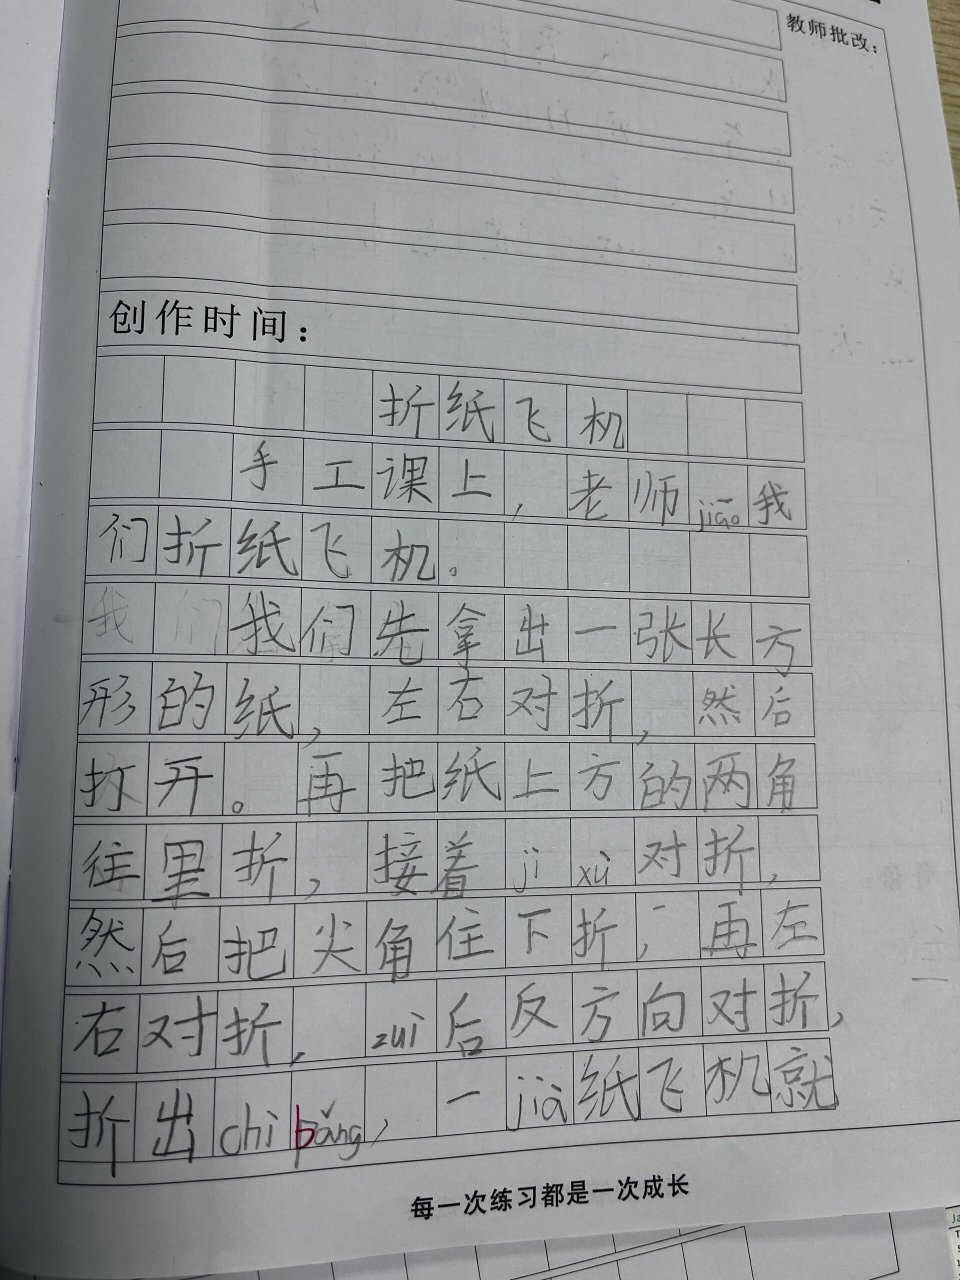 教师批改：
创作时间：
折纸飞机
手工课上，老师jiāo我
们折纸飞机。
我们我们先拿出一张长方
形的纸，左右对折，然后
打开。再把纸上方的两角
往里折，接着jì xù对折，
然后把尖角住下折，再左
右对折，zuì后反方向对折，
折出chì bǎng，一jià纸飞机就
每一次练习都是一次成长